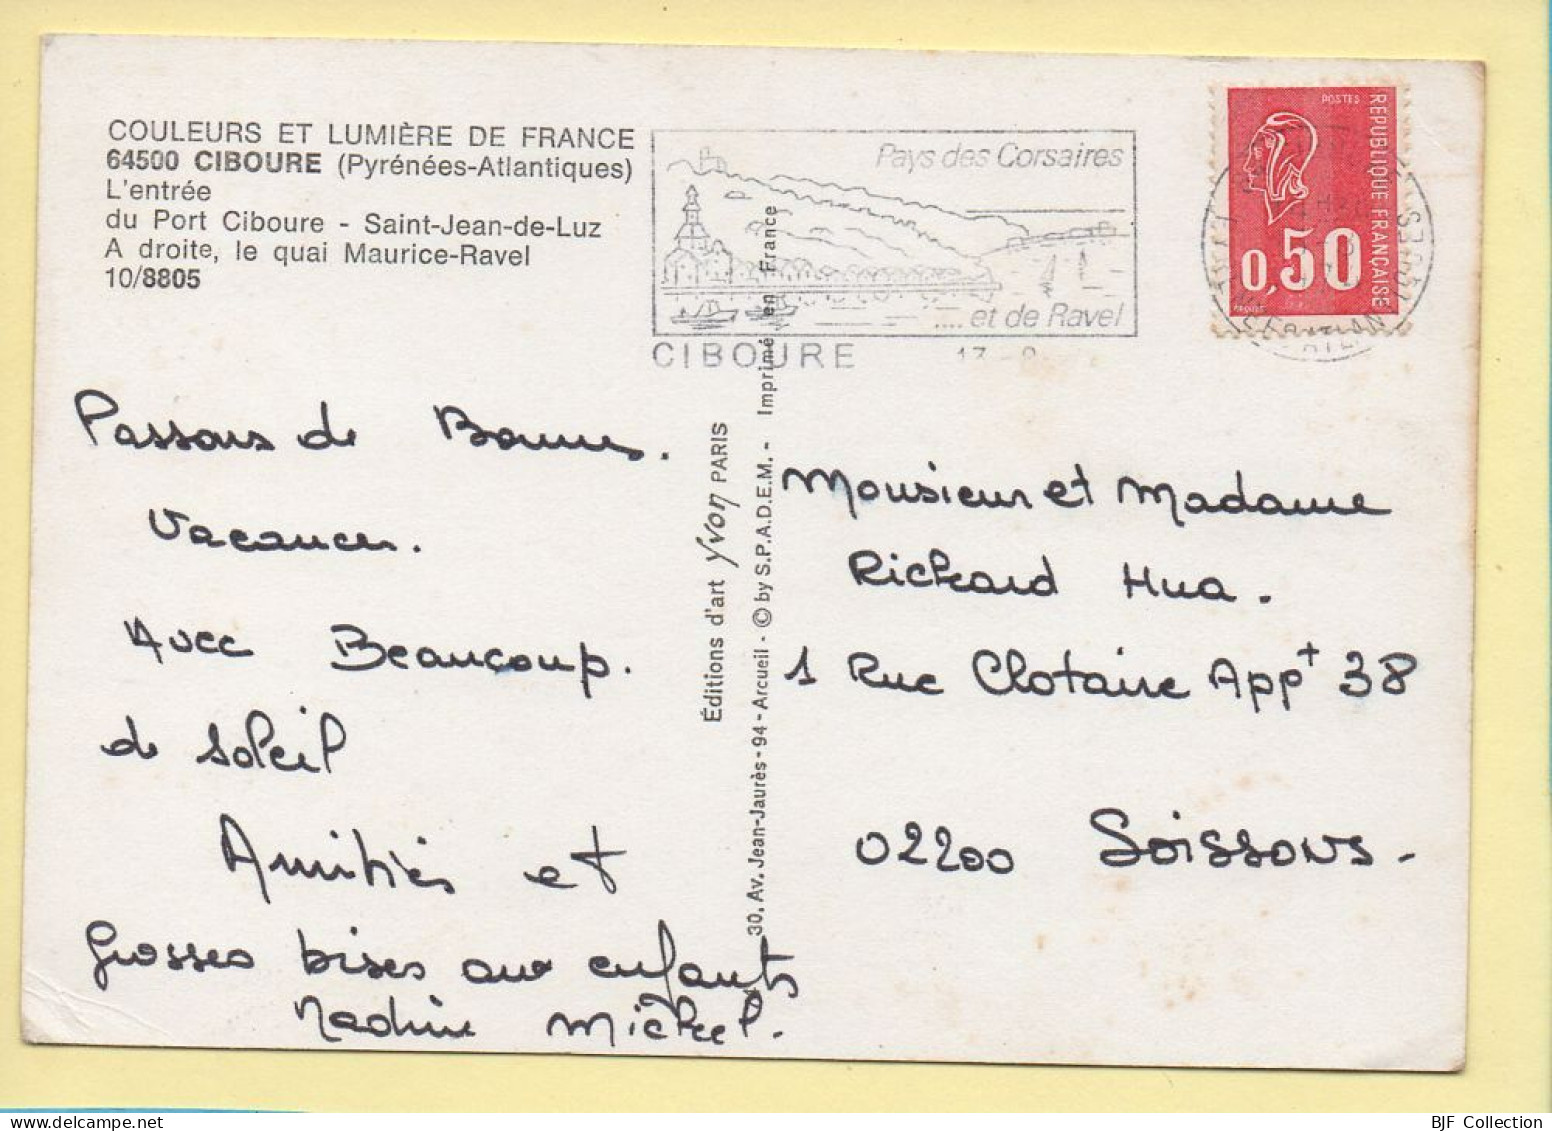 COULEURS ET LUMIÈRE DE FRANCE
64500 CIBOURE (Pyrénées-Atlantiques)
L'entrée
du Port Ciboure - Saint-Jean-de-Luz
A droite, le quai Maurice-Ravel
10/8805
Pays des Corsaires
.... et de Ravel
CIBOURE
POSTES
RÉPUBLIQUE FRANÇAISE
0,50
Passons de Bonnes.
Vacances.
Avec Beaucoup.
de soleil
Amitiés et
Grosses bises aux enfants
Nadine Michel.
Éditions d'art Yvon PARIS
30, Av. Jean-Jaurès - 94 - Arcueil - © by S.P.A.D.E.M. - Imprimé en France
Monsieur et Madame
Richard Hua.
1 Rue Clotaire Appt 38
02200 Soissons.
BJF Collection